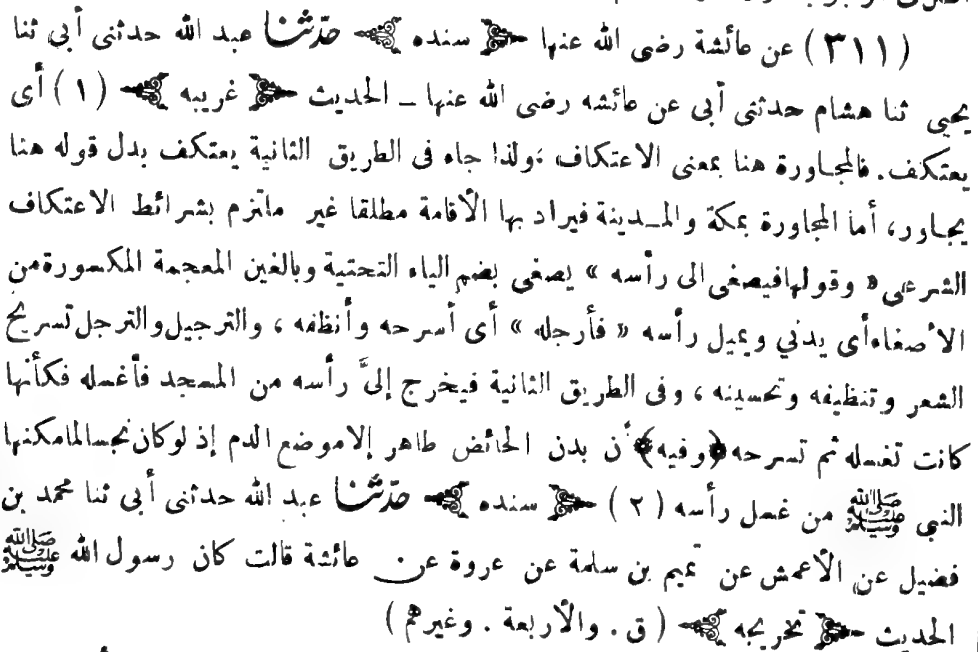 (٣١١) عن عائشة رضى الله عنها ﴿ سنده ﴾ حدّثنا عبد الله حدثنى أبى ثنا
يحيى ثنا هشام حدثنى أبى عن عائشه رضى الله عنها ــ الحديث ﴿ غريبه ﴾ (١) أى
يعتكف. فالمجاورة هنا بمعنى الاعتكاف ،ولذا جاء فى الطريق الثانية يعتكف بدل قوله هنا
يجاور، أما المجاورة بمكة والمــدينة فيراد بها الأقامة مطلقا غير ملتزم بشرائط الاعتكاف
الشرعى « وقولهافيصغى الى رأسه » يصغى بضم الياء التحتية وبالغين المعجمة المكسورةمن
الأصغاءأى يدني ويميل رأسه « فأرجله » أى أسرحه وأنظفه ، والترجيل والترجل تسريح
الشعر وتنظيفه وتحسينه ، وفى الطريق الثانية فيخرج إلىَّ رأسه من المسجد فأغسله فكأنها
كانت تغسله ثم تسرحه ﴿وفيه﴾ أن بدن الحائض طاهر إلاموضع الدم إذ لوكان نجسالمامكنها
النبى ﷺ من غسل رأسه (٢) ﴿ سنده ﴾ حدّثنا عبد الله حدثنى أبى ثنا محمد بن
فضيل عن الأعمش عن تميم بن سلمة عن عروة عن عائشة قالت كان رسول الله ﷺ
الحديث ﴿ تخريجه ﴾ (ق . والأربعة . وغيرهم)